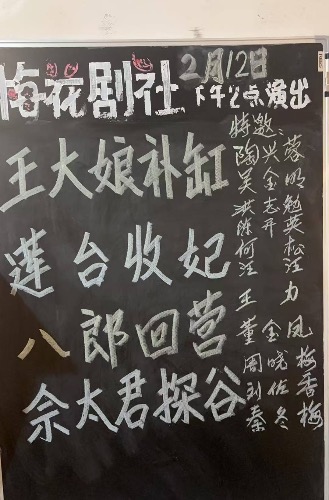 梅花剧社
2月12日
下午2点演出
王大娘补缸
莲台收妃
八郎回营
佘太君探谷
特邀:
陶兴蓉
吴金明
洪志勉
陈开英
何松
汪江
王力
董金凤
周晓梅
刘佐香
秦冬梅